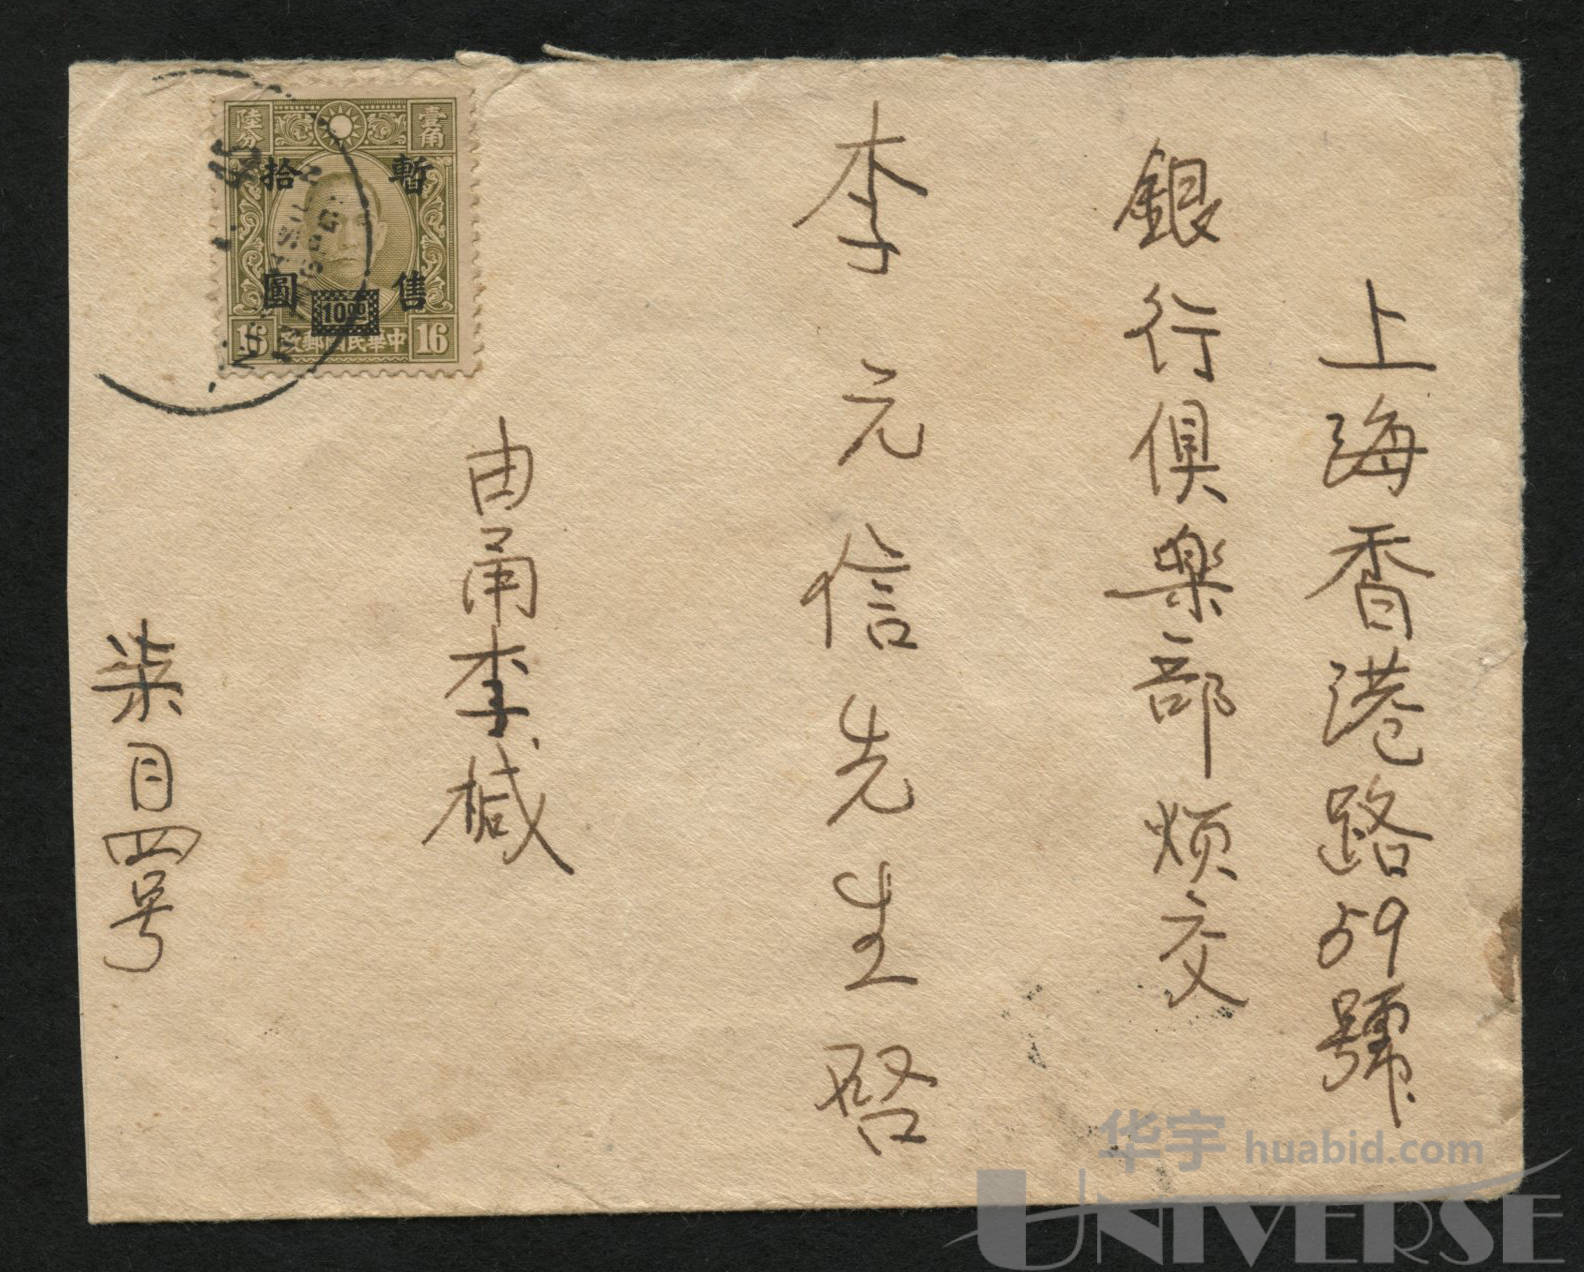 上海香港路59號
銀行俱樂部煩交
李元信先生啓
由甬李椷
柒月四号
壹角
陸分
暫售
拾圓
10.00
16
16
中華民國郵政
华宇 huabid.com
UNIVERSE